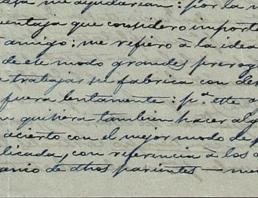 me ayudarian: por la
ventaja que considero importe
amigo; me refiero á la idea
de este modo grandes prerrog
trabajar su fabrica con der
fuera lentamente: pª este a
quiera tambien hacer alg
acierto con el mejor modo de p
licada, con referencia á los a
de dhos parientes — me